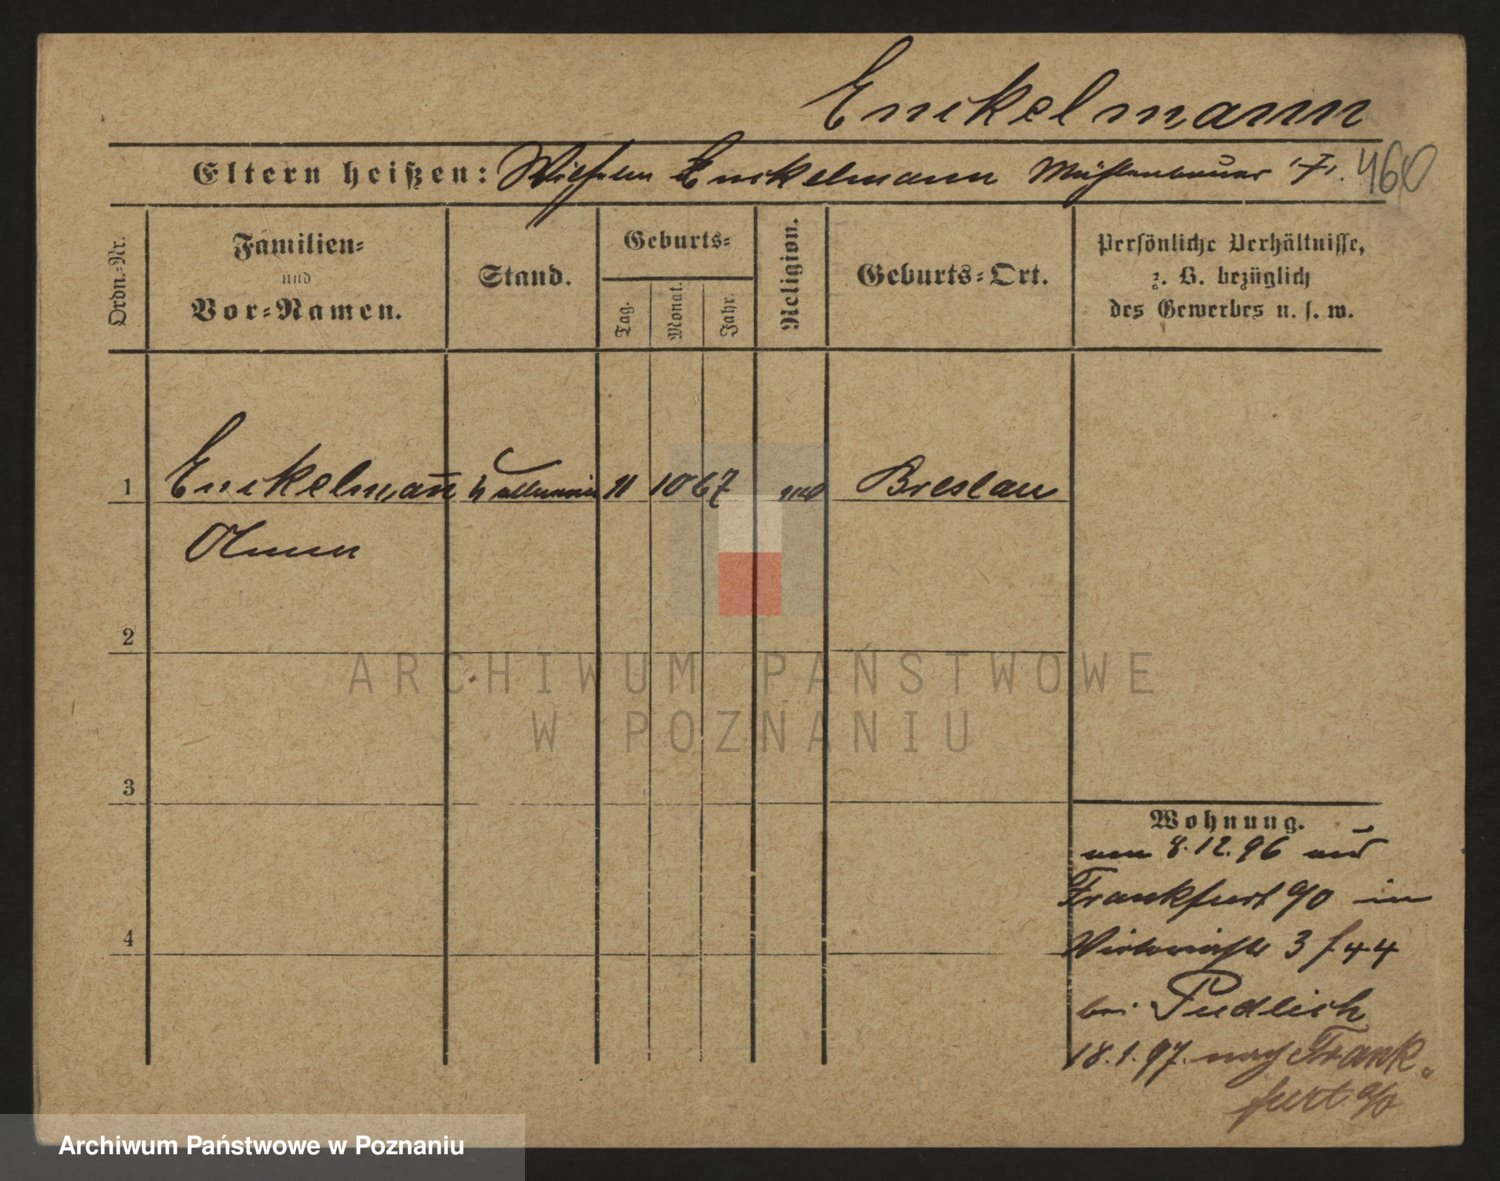 Enckelmann
Eltern heißen: Wilhelm Enckelmann Mühlenbauer †. 460
Ordn.-Nr.
Familien-
und
Vor-Namen.
Stand.
Geburts-
Tag.
Monat.
Jahr.
Religion.
Geburts-Ort.
Persönliche Verhältnisse,
z. B. bezüglich
des Gewerbes u. s. w.
1 Enckelmann 11 10 67 Breslau
2
3
4
Wohnung.
am 8.12.96 aus
Frankfurt a/O in
Victoriastr 3
bei Pudlich
18.1.97. nach Frank-
furt a/O
ARCHIWUM PAŃSTWOWE
W POZNANIU
Archiwum Państwowe w Poznaniu